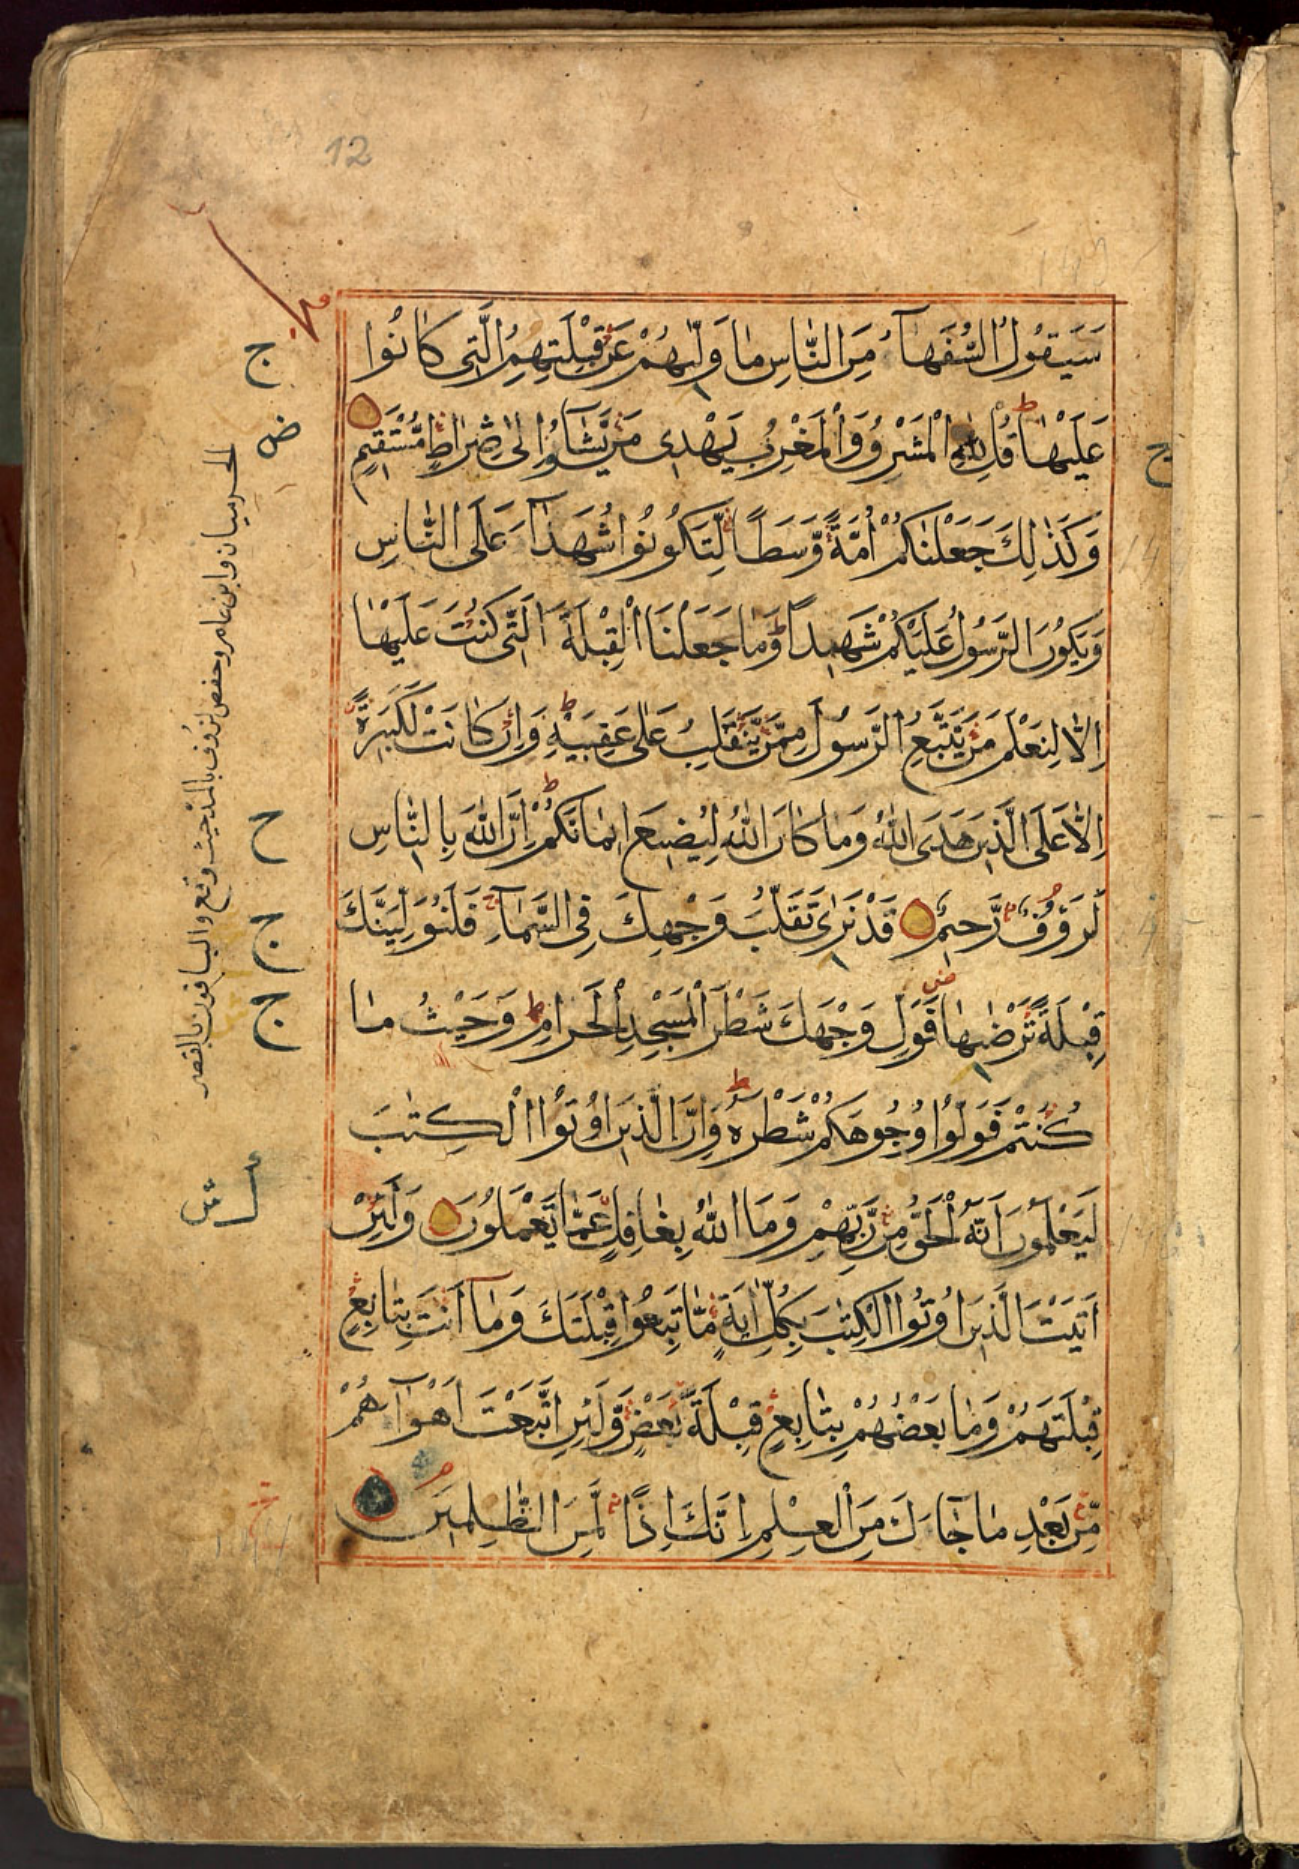 12
سَيَقُولُ السُّفَهَآءُ مِنَ النَّاسِ مَا وَلّٰىهُمْ عَنْ قِبْلَتِهِمُ الَّتِى كَانُوا
عَلَيْهَا قُلْ لِلّٰهِ الْمَشْرِقُ وَالْمَغْرِبُ يَهْدِى مَنْ يَّشَآءُ اِلٰى صِرَاطٍ مُّسْتَقِيمٍ
وَكَذٰلِكَ جَعَلْنٰكُمْ اُمَّةً وَّسَطًا لِّتَكُونُوا شُهَدَآءَ عَلَى النَّاسِ
وَيَكُونَ الرَّسُولُ عَلَيْكُمْ شَهِيدًا وَمَا جَعَلْنَا الْقِبْلَةَ الَّتِى كُنْتَ عَلَيْهَا
اِلَّا لِنَعْلَمَ مَنْ يَّتَّبِعُ الرَّسُولَ مِمَّنْ يَّنْقَلِبُ عَلٰى عَقِبَيْهِ وَاِنْ كَانَتْ لَكَبِيرَةً
اِلَّا عَلَى الَّذِينَ هَدَى اللّٰهُ وَمَا كَانَ اللّٰهُ لِيُضِيعَ اِيمَانَكُمْ اِنَّ اللّٰهَ بِالنَّاسِ
لَرَؤُفٌ رَّحِيمٌ قَدْ نَرٰى تَقَلُّبَ وَجْهِكَ فِى السَّمَآءِ فَلَنُوَلِّيَنَّكَ
قِبْلَةً تَرْضٰىهَا فَوَلِّ وَجْهَكَ شَطْرَ الْمَسْجِدِ الْحَرَامِ وَحَيْثُ مَا
كُنْتُمْ فَوَلُّوا وُجُوهَكُمْ شَطْرَهُ وَاِنَّ الَّذِينَ اُوتُوا الْكِتٰبَ
لَيَعْلَمُونَ اَنَّهُ الْحَقُّ مِنْ رَّبِّهِمْ وَمَا اللّٰهُ بِغَافِلٍ عَمَّا يَعْمَلُونَ وَلَئِنْ
اَتَيْتَ الَّذِينَ اُوتُوا الْكِتٰبَ بِكُلِّ اٰيَةٍ مَّا تَبِعُوا قِبْلَتَكَ وَمَآ اَنْتَ بِتَابِعٍ
قِبْلَتَهُمْ وَمَا بَعْضُهُمْ بِتَابِعٍ قِبْلَةَ بَعْضٍ وَّلَئِنِ اتَّبَعْتَ اَهْوَآءَهُمْ
مِّنْ بَعْدِ مَا جَآءَكَ مِنَ الْعِلْمِ اِنَّكَ اِذًا لَّمِنَ الظّٰلِمِينَ
ج
ض
ج
ح
ج
ج
الحرميان وابن عامر وحفص لرؤف بالمد حيث وقع والباقون بالقصر